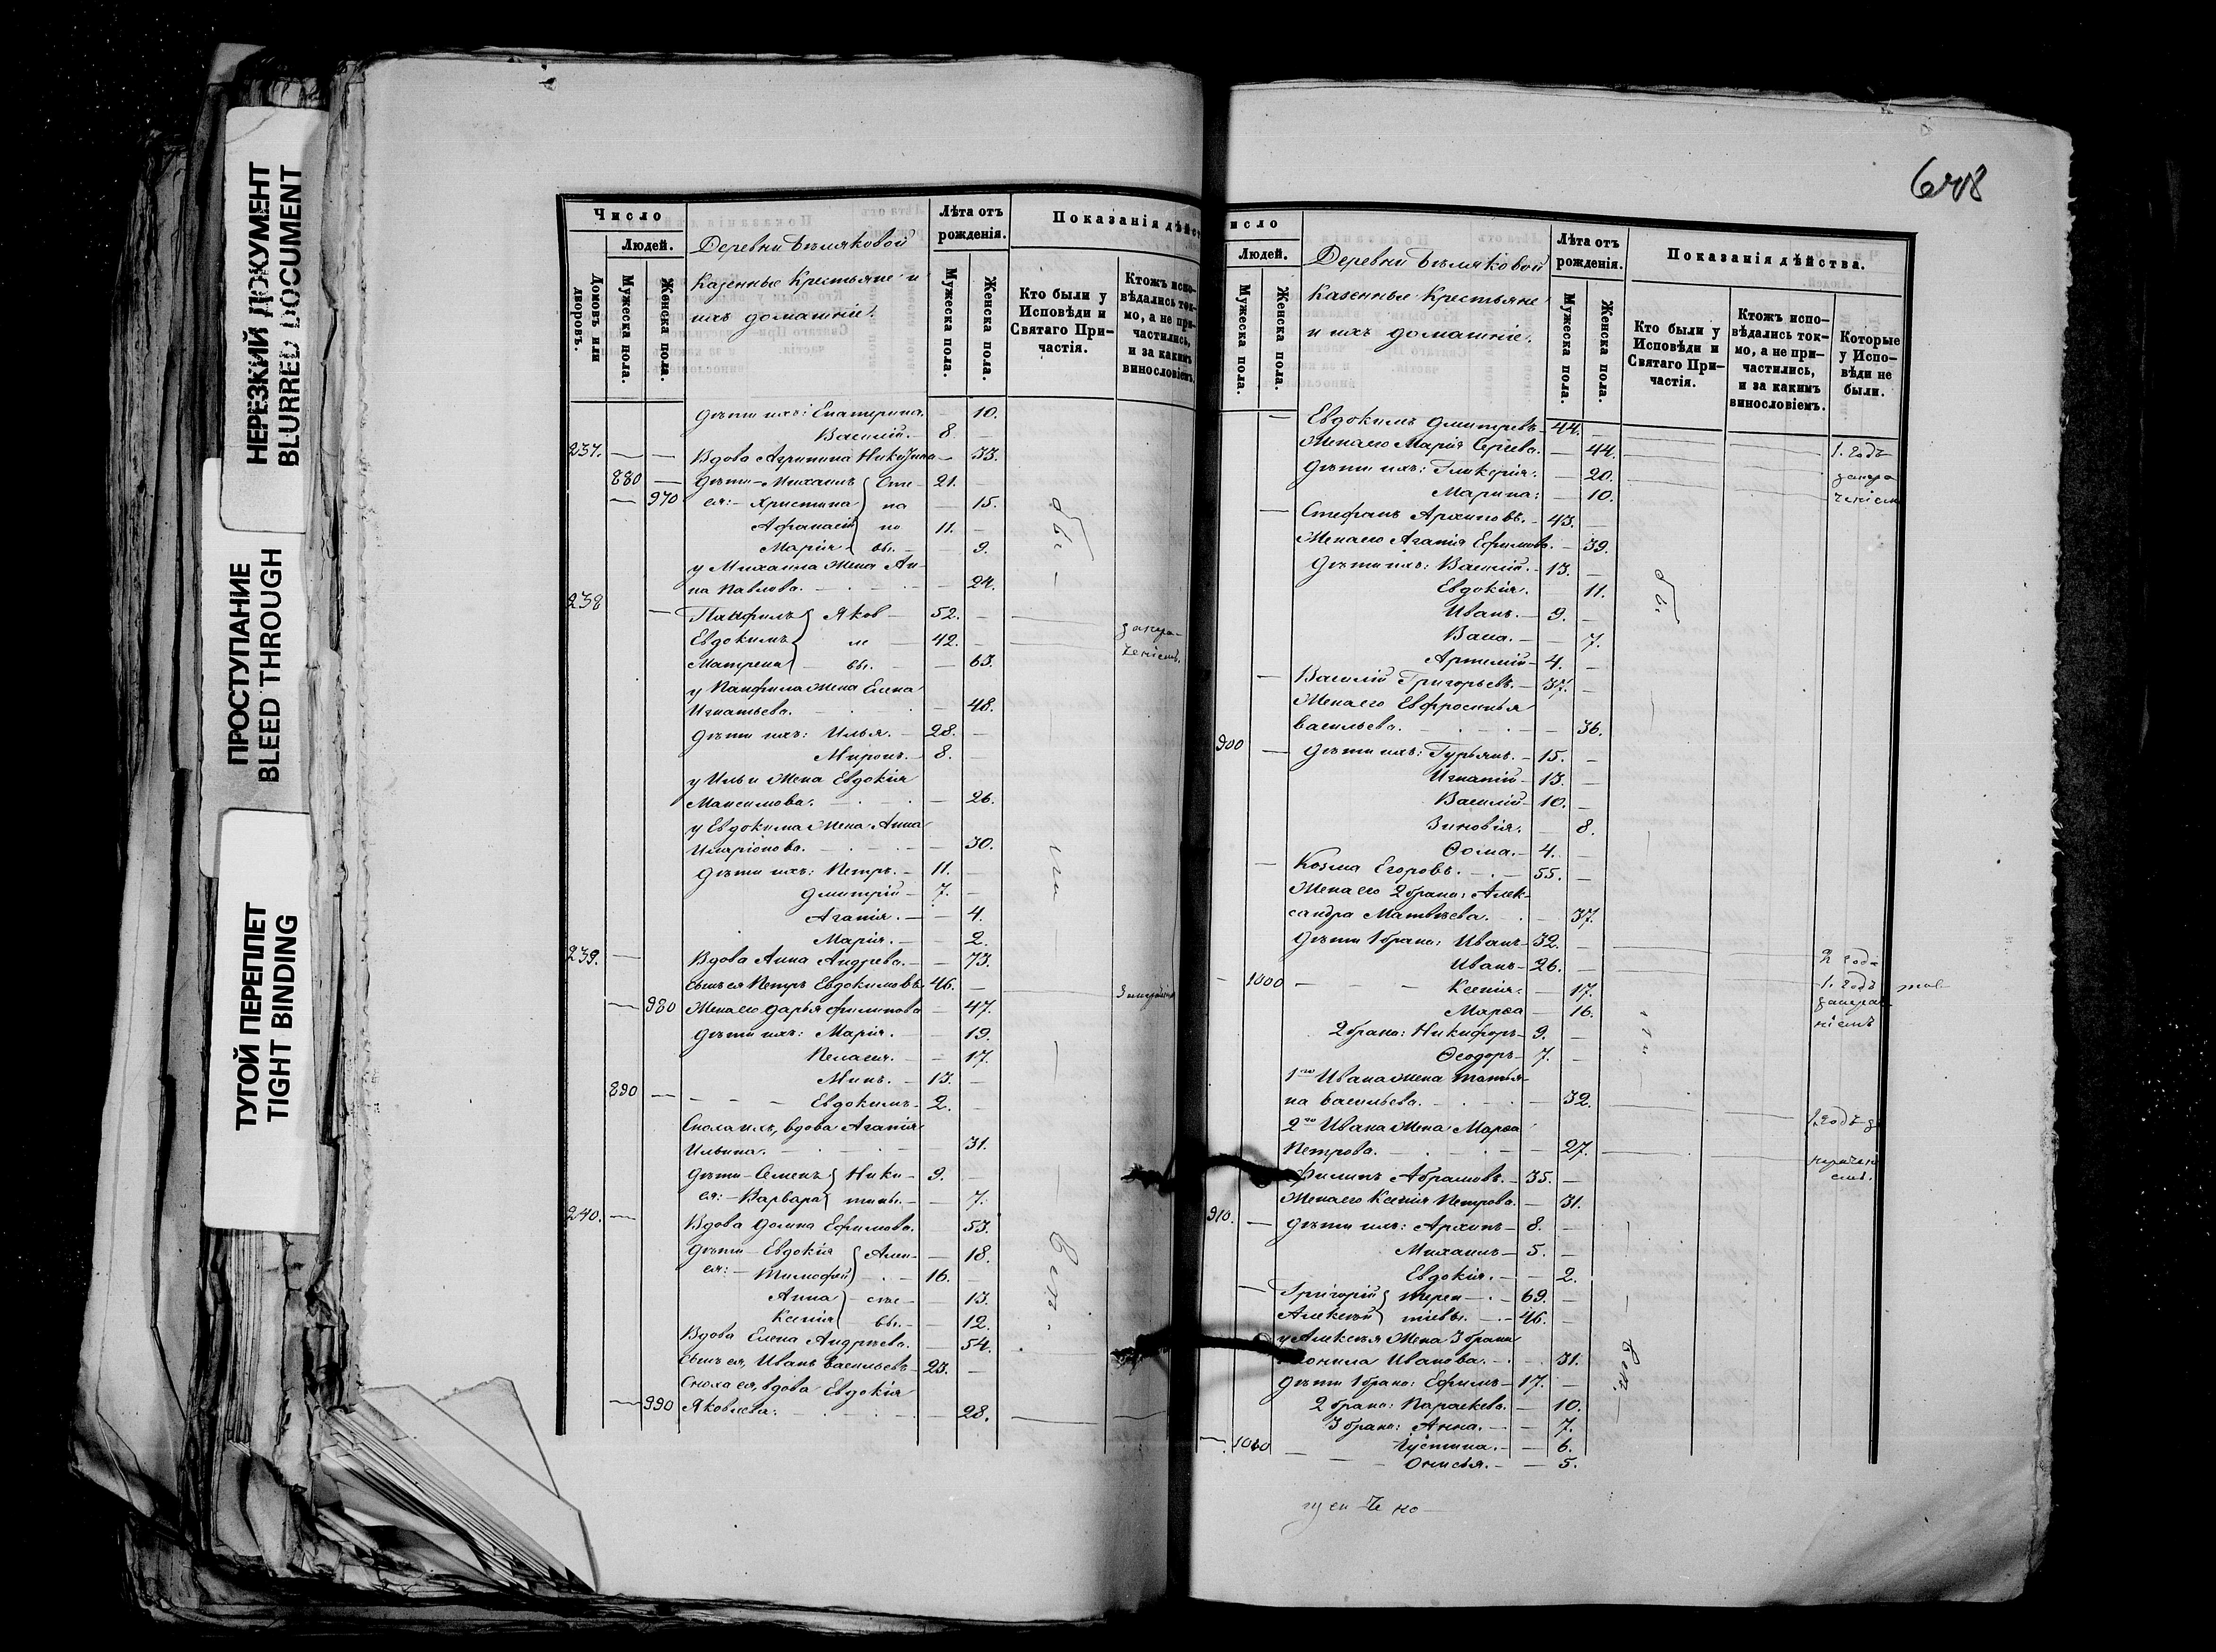 НЕРЕЗКИЙ ДОКУМЕНТ
BLURRED DOCUMENT
ПРОСТУПАНИЕ
BLEED THROUGH
ТУГОЙ ПЕРЕПЛЕТ
TIGHT BINDING
Число
Людей.
Домовъ или дворовъ.
Мужеска пола.
Женска пола.
Деревни Бѣляковой
Казенные Крестьяне и
ихъ домашніе.
Лѣта отъ рожденія.
Мужеска пола.
Женска пола.
Показанія дѣйст
Кто были у Исповѣди и Святаго Причастія.
Ктожъ исповѣдались токмо, а не причастились, и за какимъ винословіемъ.
дѣти ихъ: Екатерина. — 10.
Василій. — 8. —
237. — — Вдова Агрипина — 33.
880 — дѣти — Михаилъ Сте- 21. —
— 970 ея: — Христина па — 15.
Афанасій но 11. —
Марія вы. — 9.
у Михаила жена Ан-
на Павлова. — 24.
238 — Панфилъ Яков — 52. —
Евдокимъ ле 42. —
Матрена вы. — 63.
у Панфила жена Елена
Игнатьева. — 48.
дѣти ихъ: Илья. — 28. —
Миронъ. — 8. —
у Ильи жена Евдокія
Максимова. — 26.
у Евдокима жена Анна
Иларіонова. — 30.
дѣти ихъ: Петръ. — 11. —
Дмитрій — 7. —
Агапія. — 4.
Марія. — 2.
239. — Вдова Анна Андреева. — 73.
Сынъ ея Петръ Евдокимовъ 46. —
— 980 Жена его Дарья Филипова — 47.
дѣти ихъ: Марія. — 19.
Пелагія. — 17.
— 13. —
890 — — — — Евдокимъ — 2. —
вдова Агапія
Ильина. — 31.
дѣти — Семенъ Ники- 9. —
ея: — Варвара тины. — 7.
240. — Вдова Домна Ефимова. 53.
дѣти — Евдокія Алек- — 18.
ея: — Тимофей — 16. —
Анна сѣе- — 13.
Ксенія вы. — 12.
Вдова Елена Андреева. — 54.
Сынъ ея, Иванъ Васильевъ — 23. —
Сноха ея, вдова Евдокія
— 990 Яковлева. — 28.
исло
Людей.
Мужеска пола.
Женска пола.
Деревни Бѣляковой
Казенные Крестьяне
и ихъ домашніе.
Лѣта отъ рожденія.
Мужеска пола.
Женска пола.
Показанія дѣйства.
Кто были у Исповѣди и Святаго Причастія.
Ктожъ исповѣдались токмо, а не причастились, и за какимъ винословіемъ.
Которые у Исповѣди не были.
— Евдокимъ Дмитревъ 44.
Жена его Марія Сергѣева. — 44. 1. годъ
дѣти ихъ: Гликерія. — 20.
Марина: — 10.
— Стефанъ Архиповъ. — 43. —
Жена его Агапія Ефимова. — 39.
дѣти ихъ: Василій. — 13. —
Евдокія. 11.
Иванъ. — 9. —
Васа. — 7.
Артемій — 4. —
— Василій Григорьевъ. — 37. —
Жена его Евфросинья
Васильева. — 36.
900 — дѣти ихъ: Гурьянъ. — 15. —
Игнатій — 13. —
Василій — 10. —
Зиновія. 8.
Ѳома. — 4. —
— Козма Егоровъ. — 55. —
Жена его 2 брака: Алек-
сандра Матвѣева. — 37.
дѣти 1 брака: Иванъ — 32. — 2 года
Иванъ — 26. — 1. годъ
— 1000 — — — Ксенія. — 17.
Марѳа — 16.
2 брака: Никифоръ — 9. —
Ѳеодоръ — 7. —
1го Ивана жена Татья-
на Васильева. — 32.
2го Ивана жена Марѳа
Петрова. — 27.
Филипъ Абрамовъ. — 35. —
Жена его Ксенія Петрова. — 31.
910. — дѣти ихъ: Архипъ — 8. —
Михаилъ — 5. —
Евдокія. — 2.
— Григорій Терен — 69. —
Алексѣй тіевы. — 46. —
у Алексѣя жена 3 брака
Иванова. — 31.
дѣти 1 брака: Ефимъ — 17. —
2 брака: Параскева. — 10.
3 брака: Анна. — 7.
— 1010 — Іустина. — 6.
Онисья. — 5.